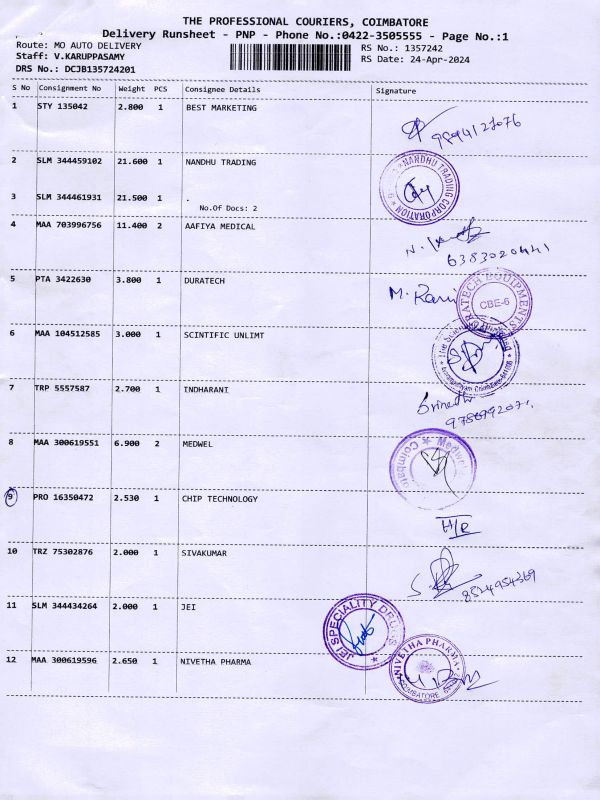 THE PROFESSIONAL COURIERS, COIMBATORE
Delivery Runsheet - PNP - Phone No.:0422-3505555 - Page No.:1
Route: MO AUTO DELIVERY
RS No.: 1357242
Staff: V.KARUPPASAMY
RS Date: 24-Apr-2024
DRS No.: DCJB135724201
S No Consignment No Weight PCS Consignee Details Signature
1 STY 135042 2.800 1 BEST MARKETING
2 SLM 344459102 21.600 1 NANDHU TRADING
NANDHU TRADING CORPORATION
3 SLM 344461931 21.500 1 .
No.Of Docs: 2
4 MAA 703996756 11.400 2 AAFIYA MEDICAL
6383020441
5 PTA 3422630 3.800 1 DURATECH
M. Rani
DURATECH EQUIPMENTS
CBE-6
6 MAA 104512585 3.000 1 SCINTIFIC UNLIMT
7 TRP 5557587 2.700 1 INDHARANI
8 MAA 300619551 6.900 2 MEDWEL
9 PRO 16350472 2.530 1 CHIP TECHNOLOGY
10 TRZ 75302876 2.000 1 SIVAKUMAR
11 SLM 344434264 2.000 1 JEI
JEI SPECIALITY DRUGS
12 MAA 300619596 2.650 1 NIVETHA PHARMA
NIVETHA PHARMA
COIMBATORE